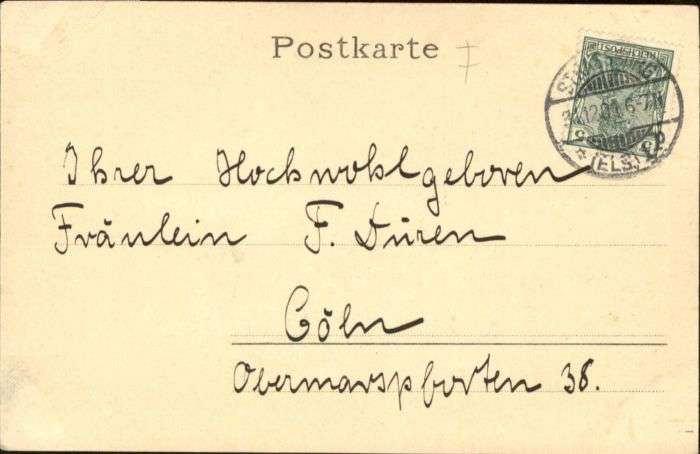 Postkarte
REICHSPOST
(ELS.)
Ihrer Hochwohlgeboren
Fräulein F. Düren
Cöln
Obermarspforten 38.